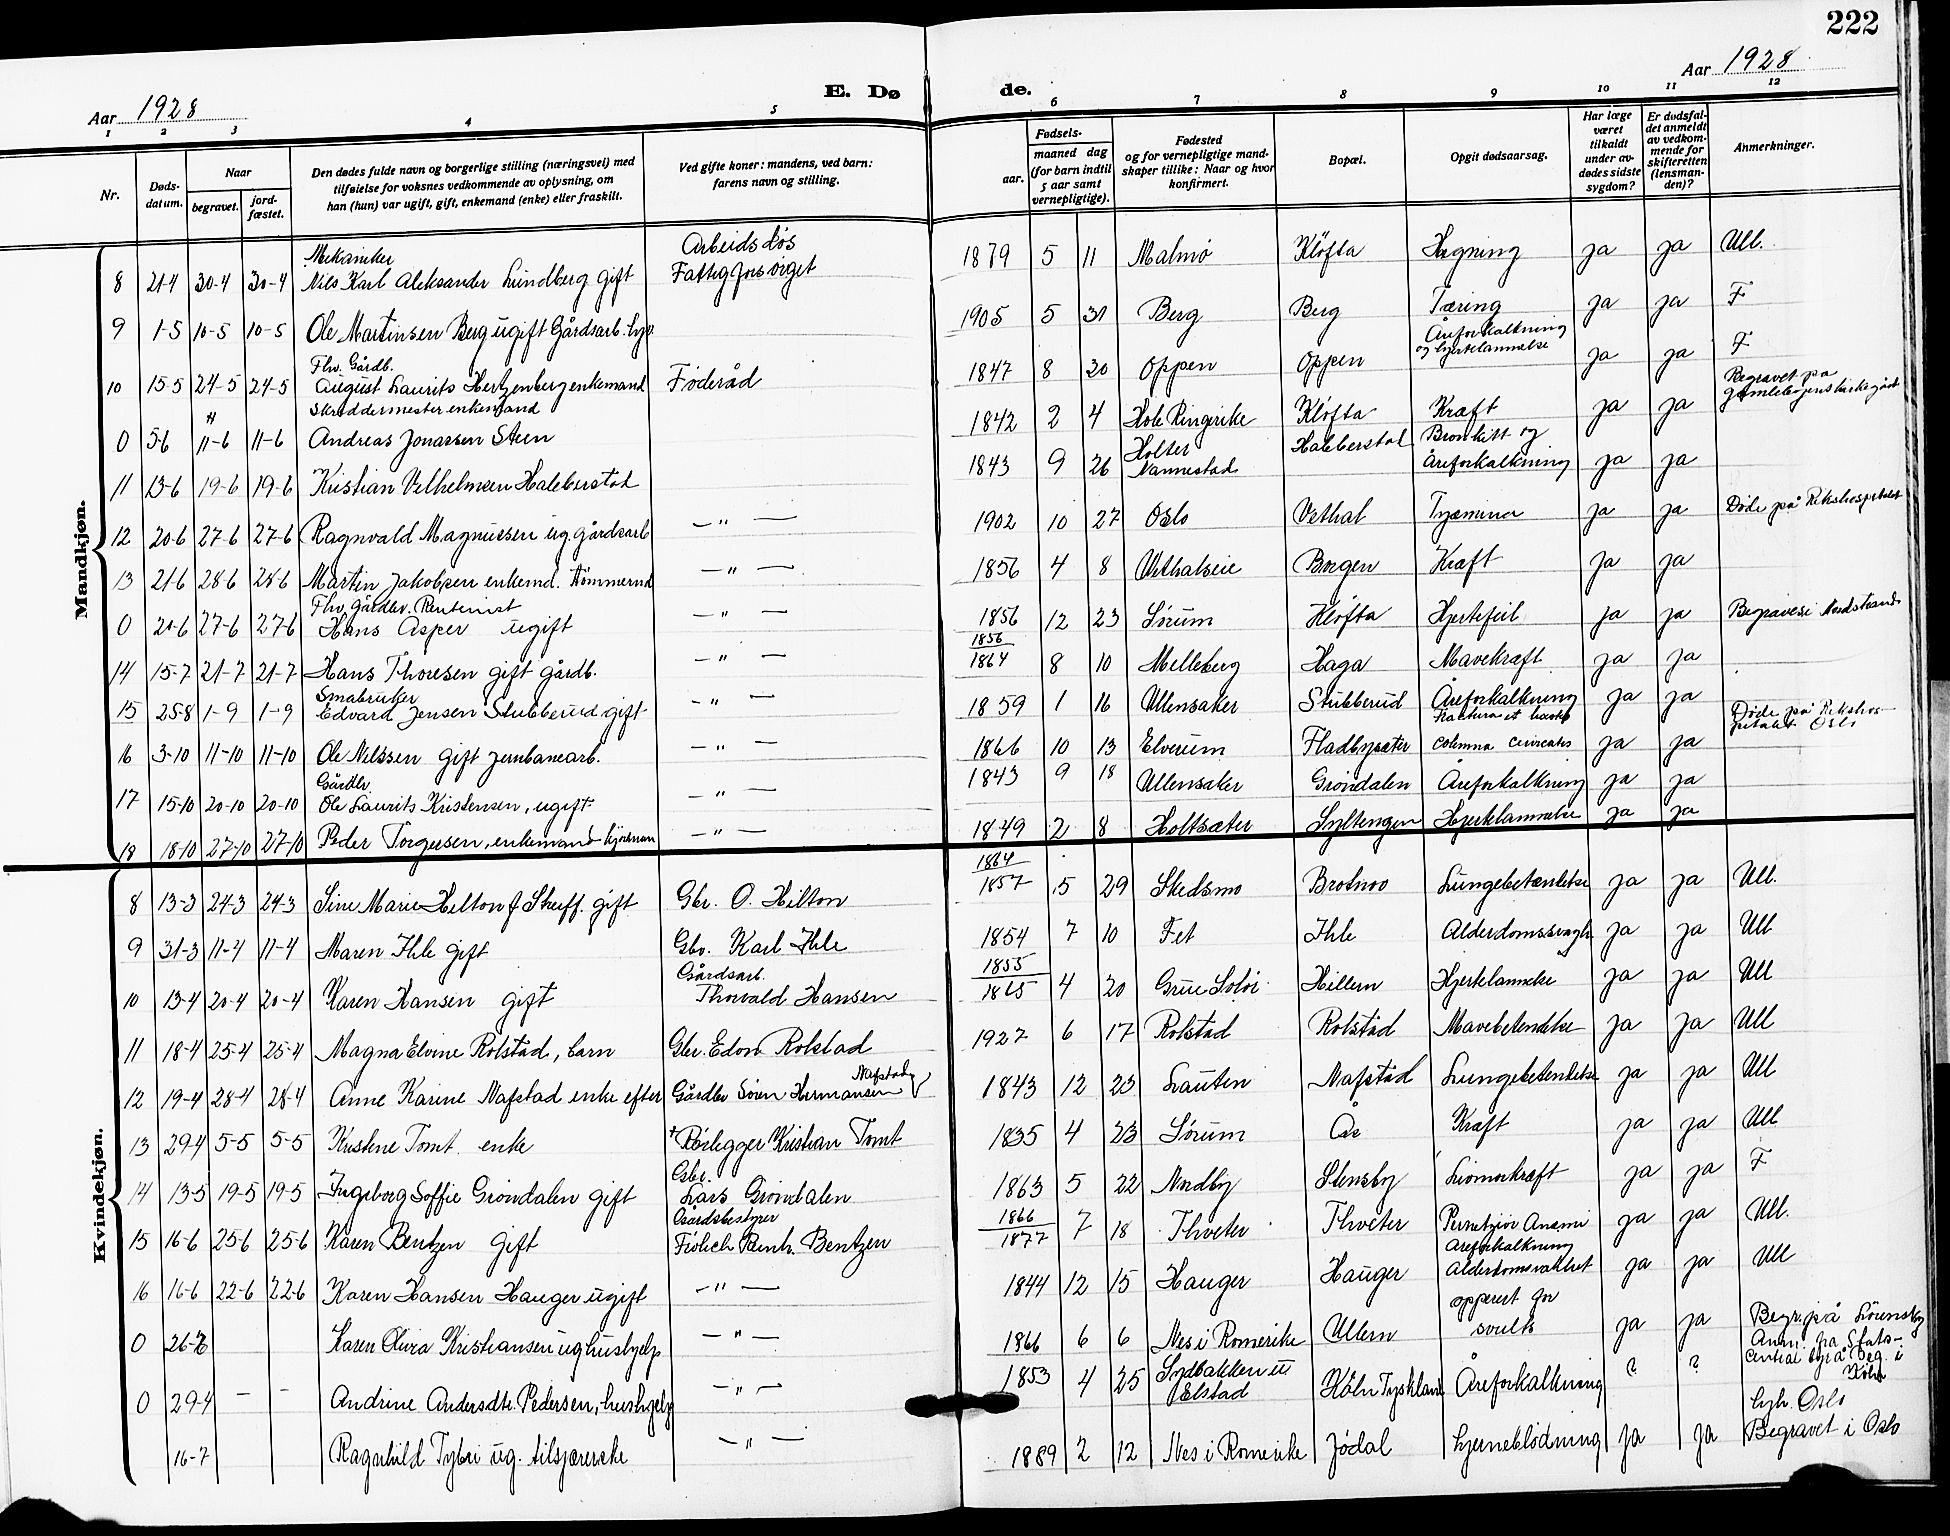 222
Aar 1928
E. Dø de.
Aar 1928
1 2 3 4 5 6 7 8 9 10 11 12
Nr.
Døds-
datum.
Naar
begravet.
jord-
fæstet.
Den dødes fulde navn og borgerlige stilling (næringsvei) med
tilføielse for voksnes vedkommende av oplysning, om
han (hun) var ugift, gift, enkemand (enke) eller fraskilt.
Ved gifte koner: mandens, ved barn:
farens navn og stilling.
Fødsels-
aar. maaned dag
(for barn indtil
5 aar samt
vernepligtige).
Fødested
og for vernepligtige mand-
skaper tillike: Naar og hvor
konfirmert.
Bopæl.
Opgit dødsaarsag.
Har læge
været
tilkaldt
under av-
dødes sidste
sygdom?
Er dødsfal-
det anmeldt
av vedkom-
mende for
skifteretten
(lensman-
den)?
Anmerkninger.
Mandkjøn.
Mekaniker Arbeidsløs
8 21-4 30-4 30-4 Nils Karl Aleksander Lundberg gift Fattigforsørget 1879 5 11 Malmø Kløfta Hegning ja ja Ull.
9 1-5 10-5 10-5 Ole Martinsen Berg ugift Gårdsarb. 1905 5 31 Berg Berg Tæring ja ja F
Fhv. Gårdb. Åreforkalkning
10 15-5 24-5 24-5 August Laurits Hertzenberg enkemand Føderåd 1847 8 20 Oppen Oppen og hjertelammelse ja ja F
Skreddermester enkemand Begravet på
0 5-6 11-6 11-6 Andreas Jonassen Steen 1842 2 4 Hole Ringerike Kløfta Kræft ja ja Gamlebyens kirkegård
Holter Bronkitt og
11 13-6 19-6 19-6 Kristian Vilhelmsen Habberstad 1843 9 26 Nannestad Habberstad Åreforkalkning ja ja
12 20-6 27-6 27-6 Ragnvald Magnussen ug. gårdsarb — " — 1902 10 27 Oslo Vethal ja ja Døde på Rikshospitalet
13 21-6 28-6 28-6 Martin Jakobsen enkemd. Tømmermd — " — 1856 4 8 Vethalseie Borgen Kræft ja ja
Fhv. gårdbr. Rentenist
0 20-6 27-6 27-6 Hans Asper ugift — " — 1856 12 23 Sørum Kløfta Hjertefeil ja ja Begraves i Nordstrand
1856
14 15-7 21-7 21-7 Hans Thoresen gift gårdb. — " — 1864 8 10 Melleberg Haga Mavekræft ja ja
Småbruker
15 25-8 1-9 1-9 Edvard Jensen Stubberud gift — " — 1859 1 16 Ullensaker Stubberud Åreforkalkning ja ja
Døde på Rikshos-
16 3-10 11-10 11-10 Ole Nilssen gift jernbanearb. — " — 1866 10 13 Elverum Fladbysæter columna ja ja pitalet Oslo
Gårdbr
17 15-10 20-10 20-10 Ole Laurits Kristensen, ugift — " — 1843 9 18 Ullensaker Grøndalen Åreforkalkning ja ja
18 18-10 27-10 27-10 Peder Torgersen, enkemand — " — 1849 2 8 Holtsæter Syltengen Hjertelammelse ja ja
Kvindekjøn.
1864
8 13-3 24-3 24-3 Sine Marie Hilton f Skeff. gift Gbr. O. Hilton 1857 5 29 Skedsmo Brotnoo Lungebetændelse ja ja Ull.
9 31-3 11-4 11-4 Maren Ihle gift Gbr. Karl Ihle 1854 7 10 Fet Ihle Alderdomssvagh ja ja Ull
Gårdsarb. 1855
10 13-4 20-4 20-4 Karen Hansen gift Thorvald Hansen 1865 4 20 Grue Solør Hillern Hjertelammelse ja ja Ull
11 18-4 25-4 25-4 Magna Elvine Rolstad, barn Gbr. Edon Rolstad 1927 6 17 Rolstad Rolstad Mavebetendelse ja ja Ull
Nafstad
12 19-4 28-4 28-4 Anne Karine Nafstad enke efter Gårdbr Søren Hermansen 1843 12 23 Lauten Nafstad Lungebetendelse ja ja Ull
13 29-4 5-5 5-5 Kristine Tomt enke † Rørlegger Kristian Tomt 1835 4 23 Sørum Ås Kræft ja ja Ull
Gbr.
14 13-5 19-5 19-5 Ingeborg Soffie Grøndalen gift Lars Grøndalen 1863 5 22 Nordby Stensby Livmorkræft ja ja F
Gårdsbestyrer 1866
15 16-6 25-6 25-6 Karen Bentzen gift Frølich Bernh. Bentzen 1877 7 18 Thveter Thveter Pernetziøs Anæmi ja ja Ull.
Åreforkalkning
16 16-6 22-6 22-6 Karen Hansen Hauger ugift — " — 1844 12 15 Hauger Hauger Alderdomsvakhet ja ja Ull
opperert for
0 26-7 Karen Olivia Kristiansen ug hushjelp — " — 1866 6 6 Nes i Romerike Ullern svulst ja ja Begr. på Lørensby
Anm. fra Stats-
Sydbakken u central byrå beg. i
0 29-4 — — Andrine Andersdtr. Pedersen, hushjelp — " — 1853 4 25 Elstad Köln Tyskland Åreforkalkning ? ? Köln
Oslo
16-7 Ragnhild Tybri ug. — " — 1889 2 12 Nes i Romerike Jødal hjerneblødning ja ja Begravet i Oslo